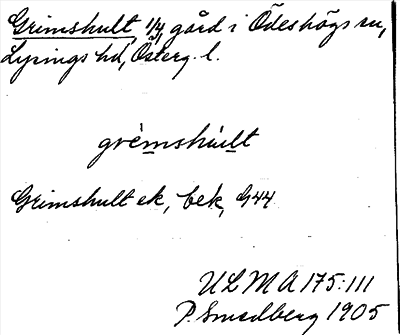 Grimshult, 1/4 gård i Ödeshögs sn,
Lysings hd, Österg. l.
grèmshúlt
Grimshult ek, bek, G44
ULMA 175:111
P. Smedberg 1905